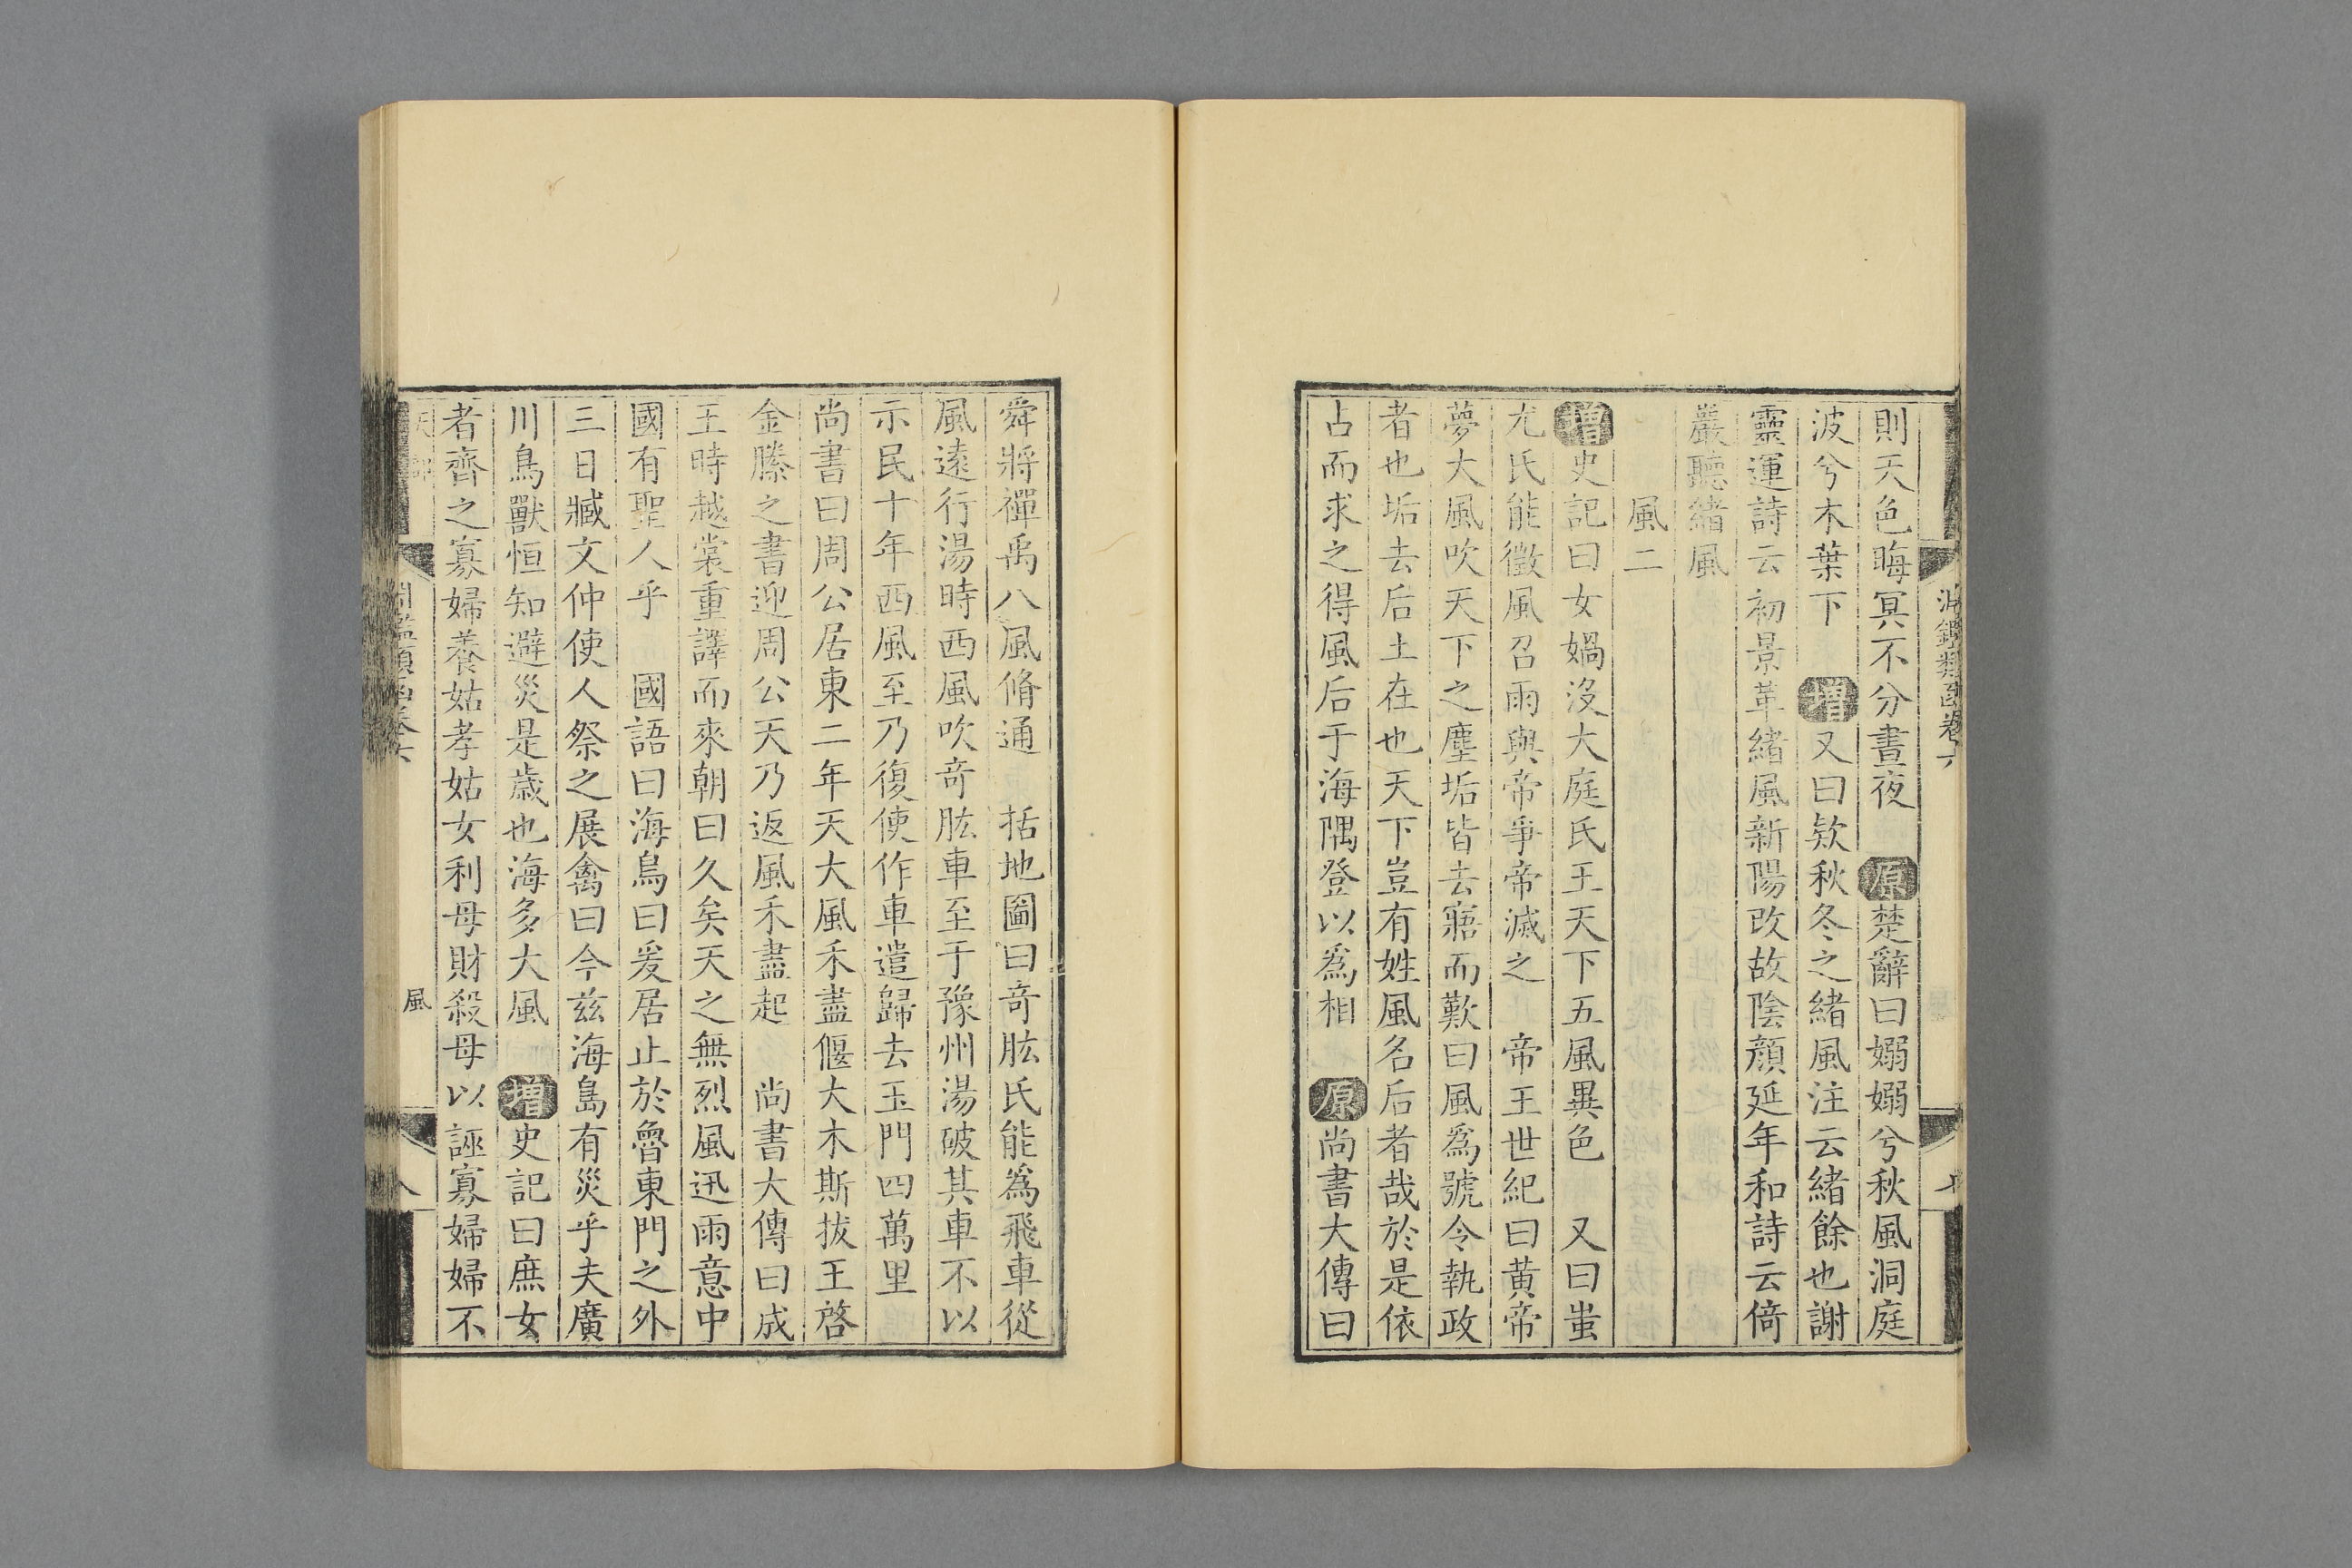 淵鑑類函卷六
則天色晦冥不分晝夜　原楚辭曰嫋嫋兮秋風洞庭
波兮木葉下　增又曰欸秋冬之緒風注云緒餘也謝
靈運詩云初景革緒風新陽改故陰顏延年和詩云倚
巖聽緒風
風二
增史記曰女媧沒大庭氏王天下五風異色　又曰蚩
尤氏能徵風召雨與帝爭帝滅之　帝王世紀曰黃帝
夢大風吹天下之塵垢皆去寤而歎曰風爲號令執政
者也垢去后土在也天下豈有姓風名后者哉於是依
占而求之得風后于海隅登以爲相　原尚書大傳曰
舜將禪禹八風脩通　括地圖曰奇肱氏能爲飛車從
風遠行湯時西風吹奇肱車至于豫州湯破其車不以
示民十年西風至乃復使作車遣歸去玉門四萬里
尚書曰周公居東二年天大風禾盡偃大木斯拔王啓
金縢之書迎周公天乃返風禾盡起　尚書大傳曰成
王時越裳重譯而來朝曰久矣天之無烈風迅雨意中
國有聖人乎　國語曰海鳥曰爰居止於魯東門之外
三日臧文仲使人祭之展禽曰今兹海島有災乎夫廣
川鳥獸恒知避災是歲也海多大風　增史記曰庶女
者齊之寡婦養姑孝姑女利母財殺母以誣寡婦婦不
淵鑑類函卷六
風
八